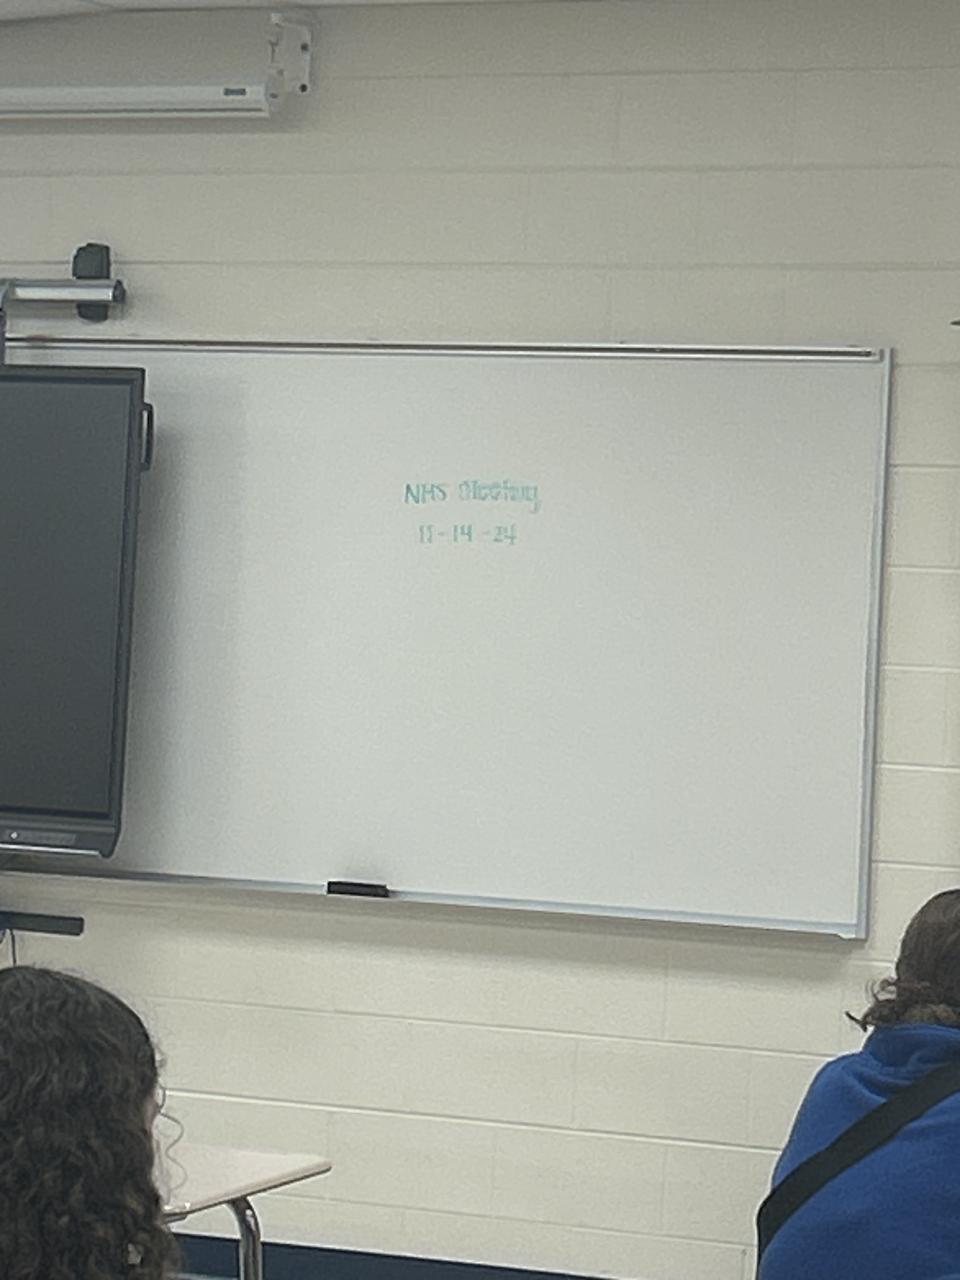 NHS Meeting
11-14-24